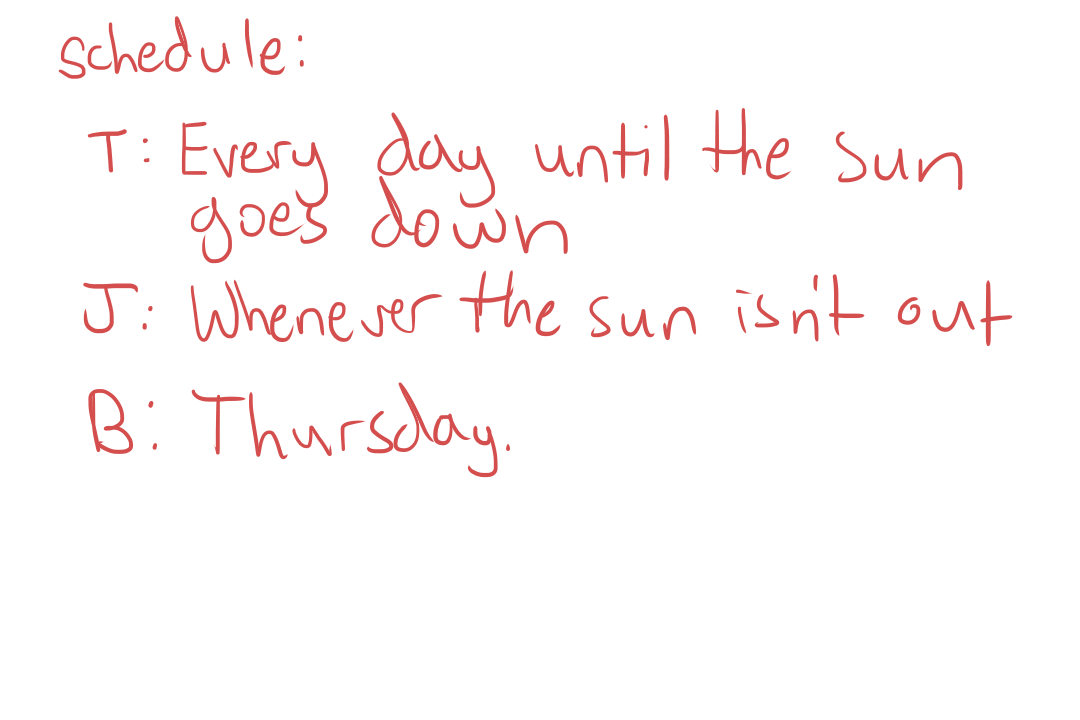 schedule:
T: Every day until the sun
goes down
J: Whenever the sun isn't out
B: Thursday.